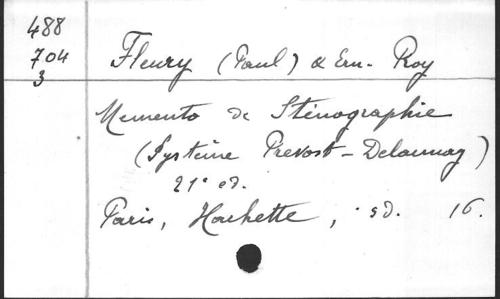 488
704
3
Fleury (Paul) & Ern. Roy
Memento de Sténographie
(Système Prévost-Delaunay)
21e ed.
Paris, Hachette, sd. 16.